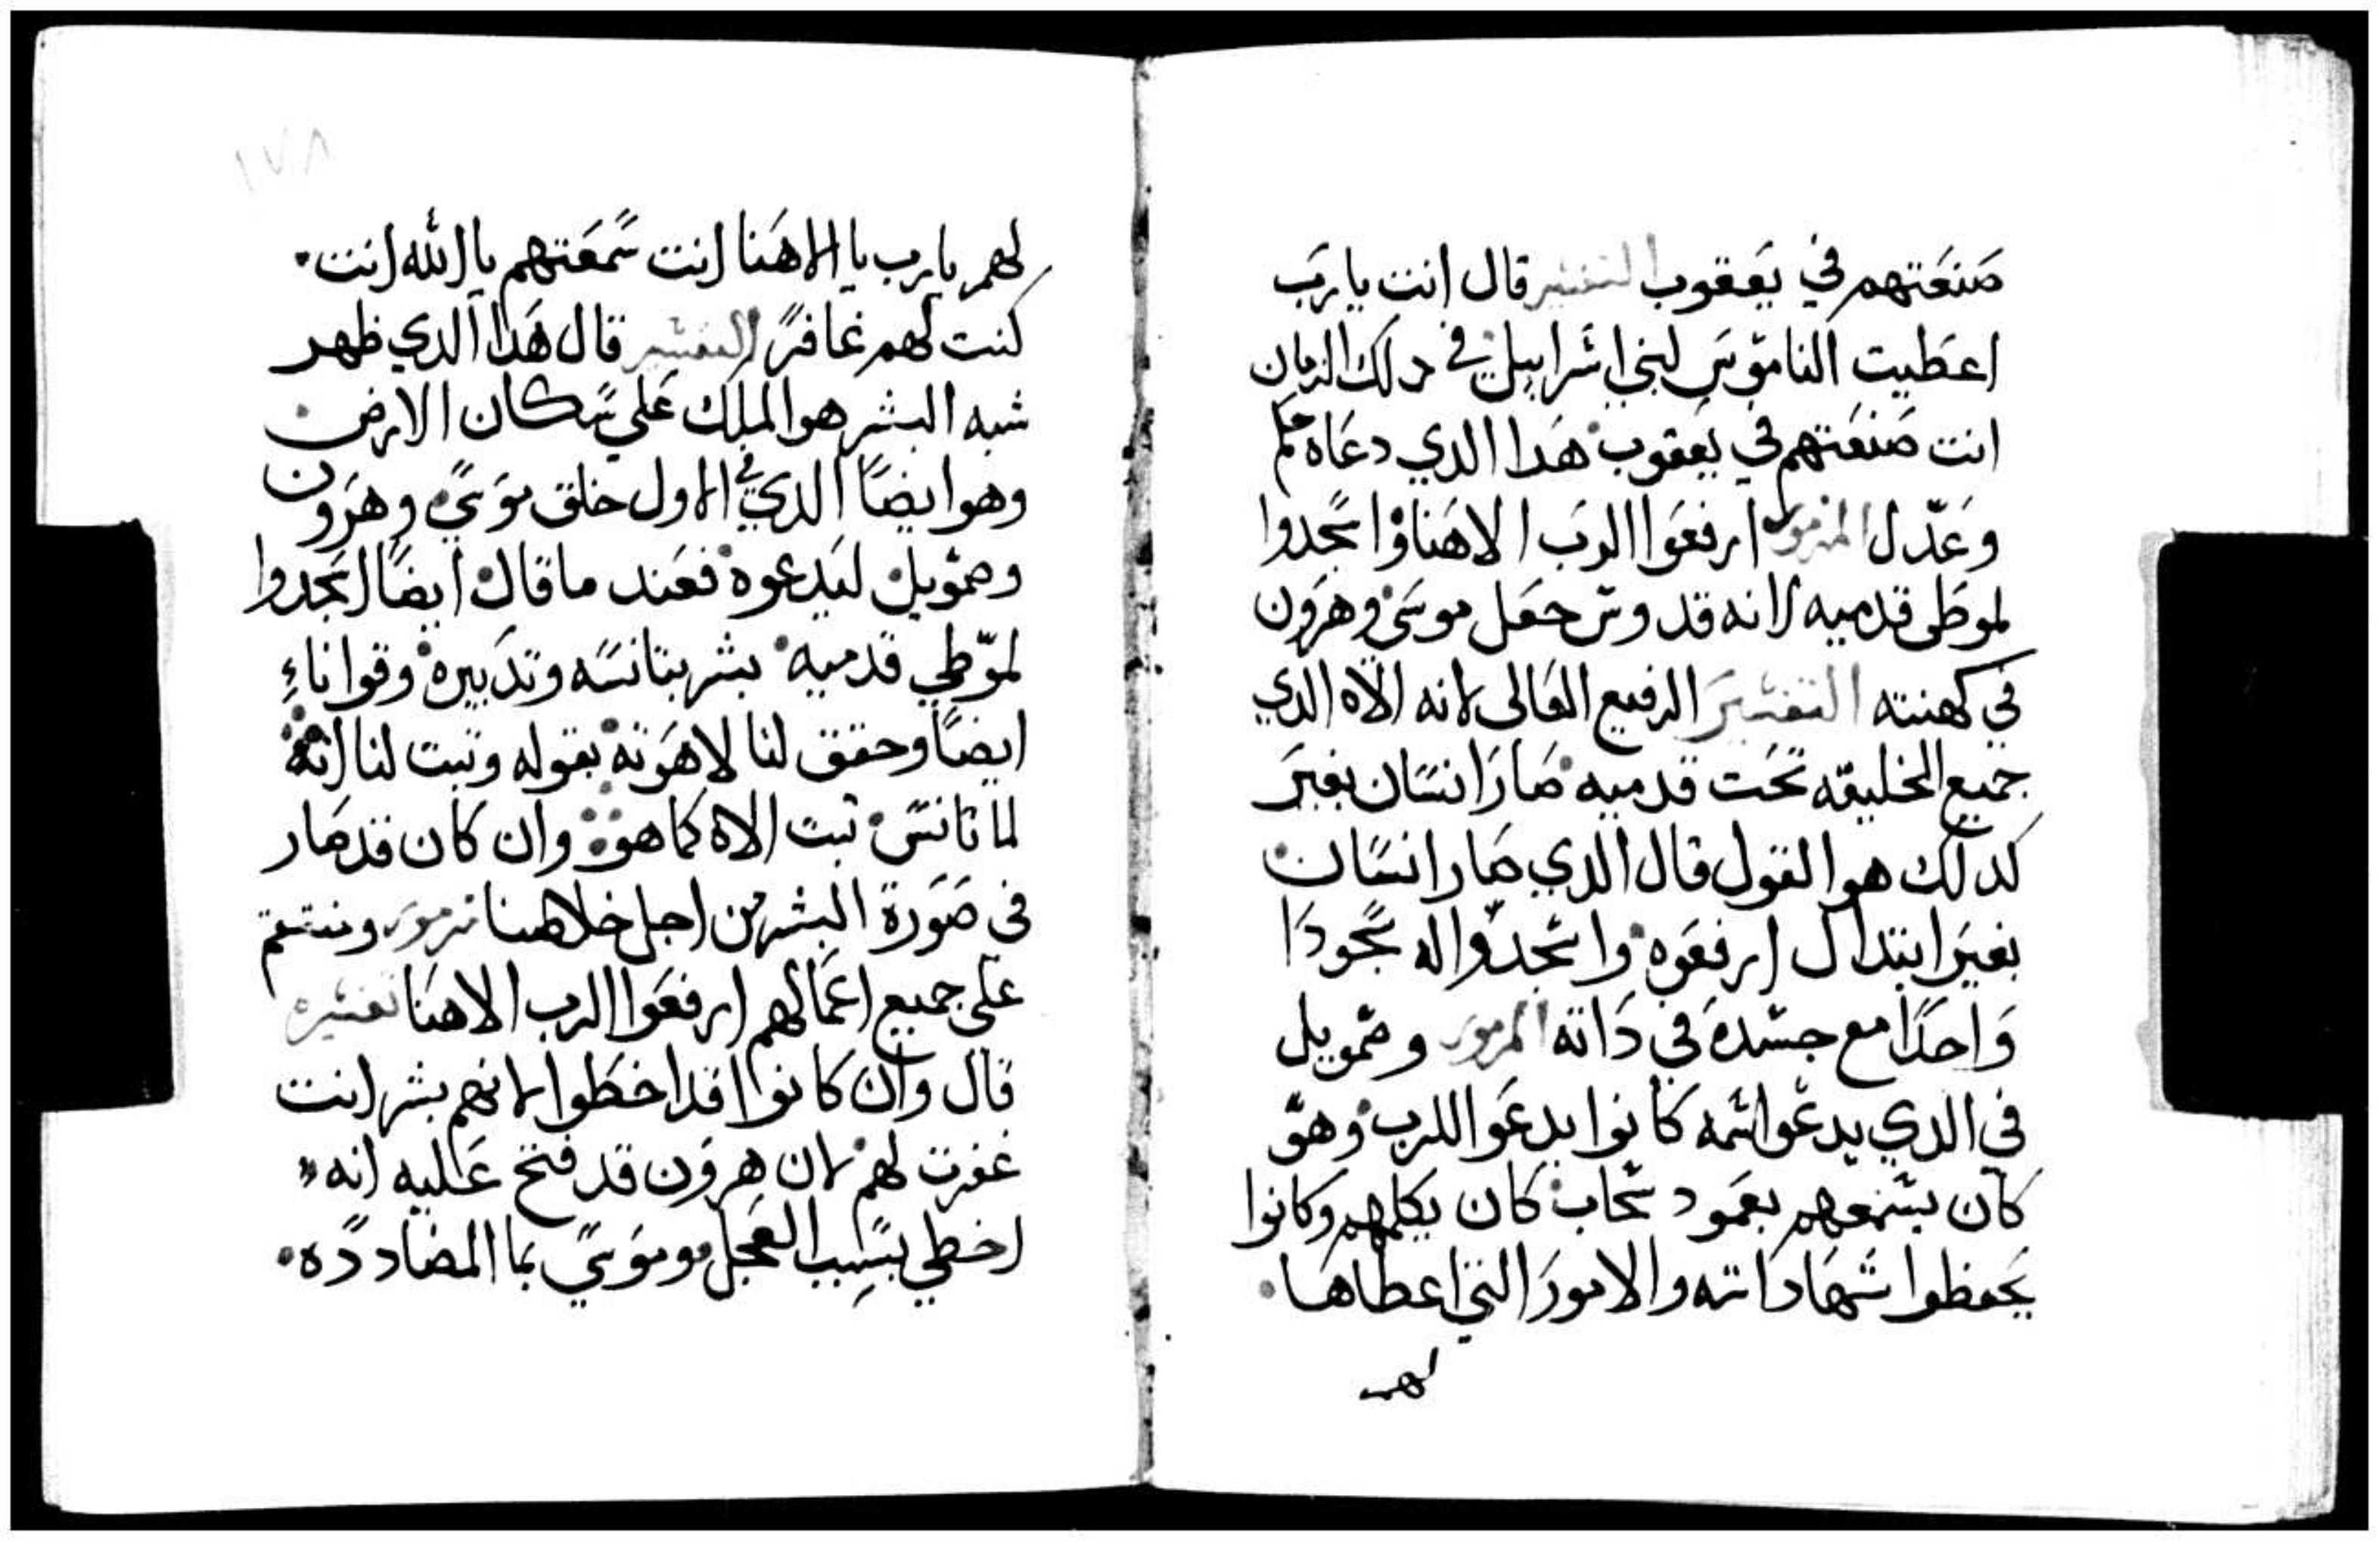 صنعتهم في يعقوب التفسير قال انت يا رب
اعطيت الناموس لبني اسراييل في دلك الزمان
انت صنعتهم في يعقوب هدا الدي دعاه حكم
وعدل المزمور ارفعوا الرب الاهنا واسجدوا
لموطى قدميه لانه قدوس جعل موسى وهرون
في كهنته التفسير الرفيع العالى لانه الاه الدي
جميع الخليقه تحت قدميه صار انسان بغير
كدلك هو القول قال الدي صار انسان
بغير ابتدال ارفعوه واسجدوا له سجودا
واحدا مع جسده في داته المزمور وصمويل
في الدي يدعوا اسمه كانوا يدعوا الرب وهو
كان يسمعهم بعمود سحاب كان يكلمهم وكانوا
يحفظوا شهاداته والامور التي اعطاها
لهم
١٧٨
لهم يا رب يا الاهنا انت سمعتهم يا الله انت
كنت لهم غافرا التفسير قال هدا الدي ظهر
شبه البشر هو الملك علي سكان الارض
وهو ايضا الدي في الاول خلق موسي وهرون
وصمويل ليدعوه فعند ما قال ايضا اسجدوا
لموطي قدميه بشر بتانسه وتدبيره وقوانا
ايضا وحقق لنا لاهوته بقوله وتبت لنا انه
لما تانس تبت الاه كما هو وان كان قد صار
في صورة البشر من اجل خلاصنا مزمور وننتقم
على جميع اعمالهم ارفعوا الرب الاهنا تفسيره
قال وان كانوا قد اخطوا لانهم بشر انت
غفرت لهم لان هرون قد فتح عليه انه
اخطي بسبب العجل وموسي بما المضاددة